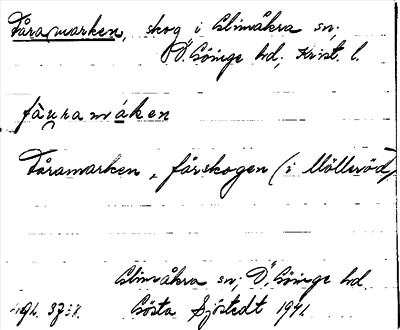 Fåramarken, skog i Glimåkra sn;
Ö. Göinge hd; Krist. l.
fåuramáken
Fåramarken, fårskogen (i Mölleröd)
Glimåkra sn; Ö. Göinge hd.
Gösta Sjöstedt 1941.